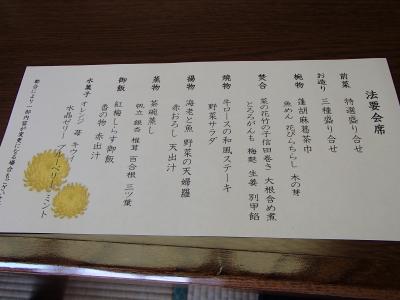 法要会席
前菜 特選盛り合せ
お造り 三種盛り合せ
椀物 蓬胡麻葛茶巾
魚めん 花びらちらし 木の芽
焚合 菜の花竹の子信田巻き 大根含め煮
とろろがんも 梅麩 生姜 別甲餡
焼物 牛ロースの和風ステーキ
野菜サラダ
揚物 海老と魚 野菜の天婦羅
赤おろし 天出汁
蒸物 茶碗蒸し
帆立 銀杏 椎茸 百合根 三ツ葉
御飯 紅梅しらす御飯
香の物 赤出汁
水菓子 オレンジ 苺 キウイ
水晶ゼリー ブルーベリー ミント
都合により一部内容が変更になる場合もございます